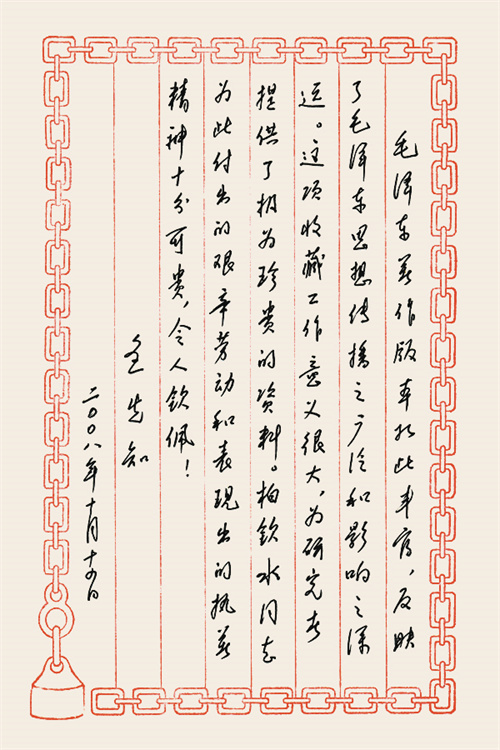 毛泽东著作版本如此丰富，反映
了毛泽东思想传播之广泛和影响之深
远。这项收藏工作意义很大，为研究者
提供了极为珍贵的资料。柏钦水同志
为此付出的艰辛劳动和表现出的执着
精神十分可贵，令人钦佩！
逄先知
二〇〇八年十月十日